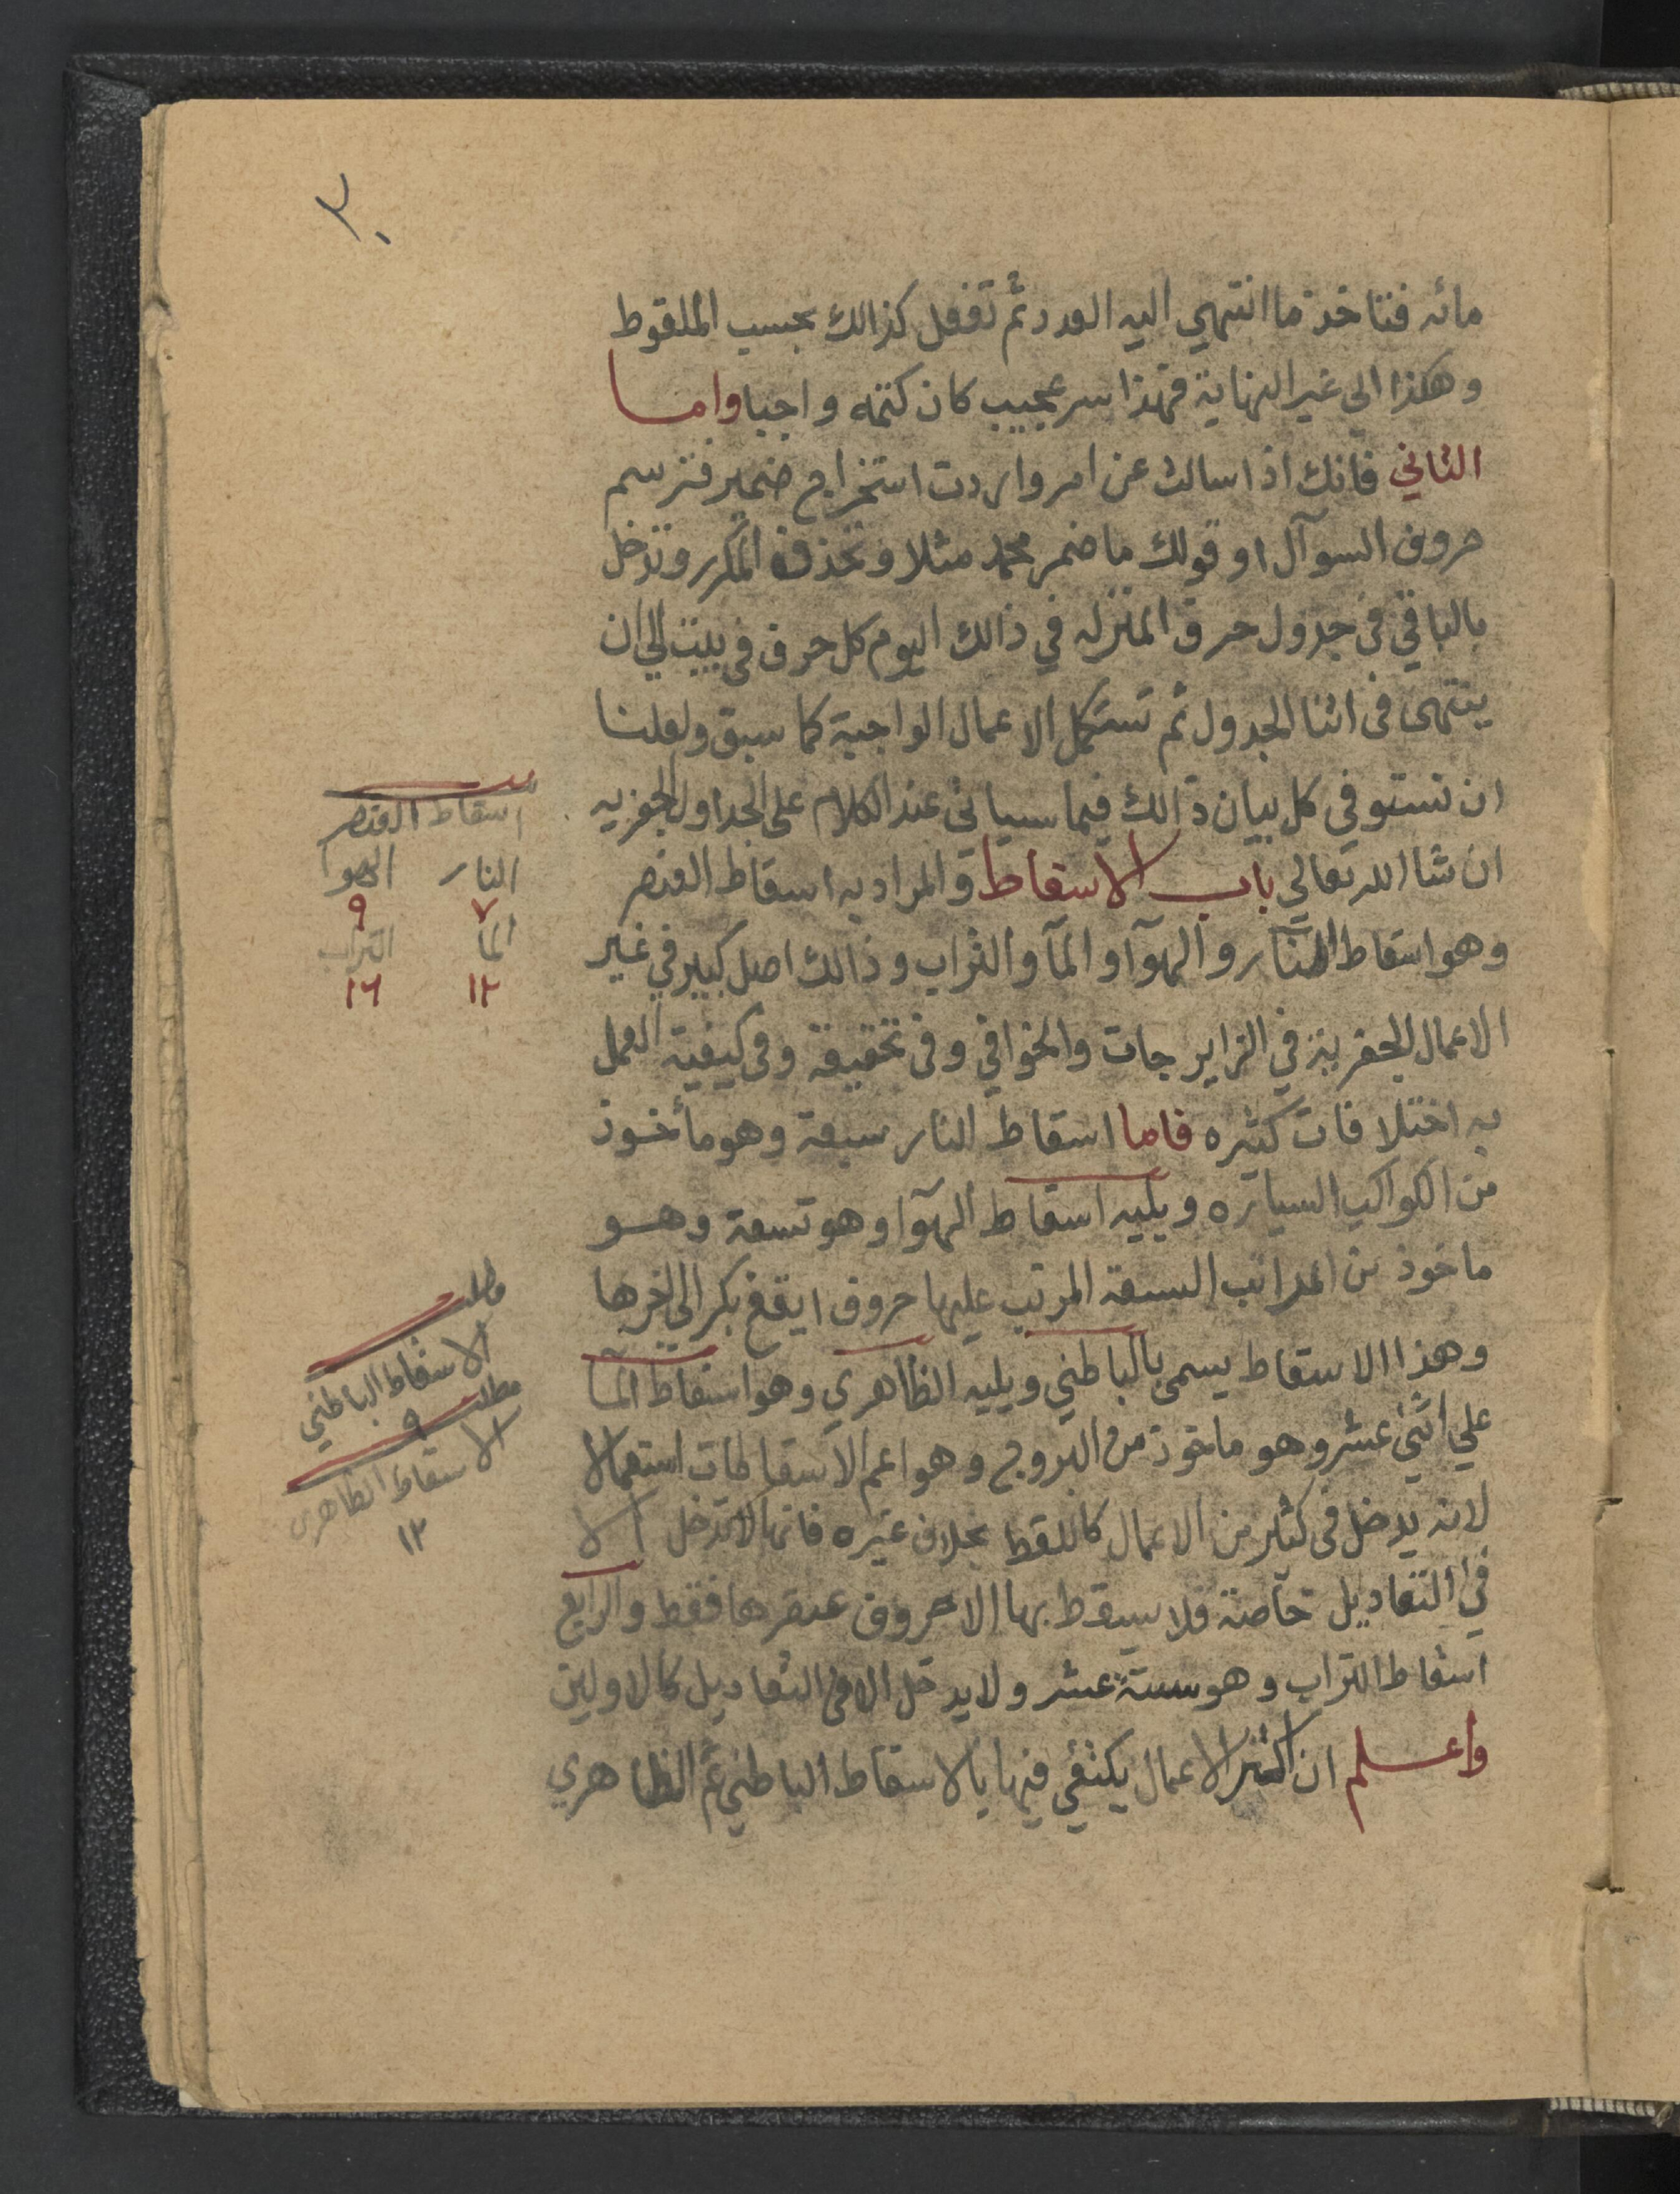 ٢٠
مائه فتاخذ ما انتهي اليه العدد ثم تفعل كذالك بحسب الملقوط
وهكذا الي غير النهاية فهذا سر عجيب كان كتمه واجبا واما
الثاني فانك اذا سالت عن امر واردت استخراج ضمير فترسم
حروف السوآل او قولك ما ضمر محمد مثلا وتحذف المكرر وتدخل
بالباقي في جدول حرف المنزله في ذالك اليوم كل حرف في بيت الي ان
ينتهي في اثنا الجدول ثم تستكمل الاعمال الواجبة كما سبق ولعلنا
ان نستوفي كل بيان ذالك فيما سياتي عند الكلام علي الجداول الجفريه
ان شا الله تعالي باب الاسقاط والمراد به اسقاط العنصر
وهو اسقاط النار والهوآ والمآ والتراب وذالك اصل كبير في غير
الاعمال الجفريه في الزايرجات والخوافي وفي تحقيقة وفي كيفية العمل
به اختلافات كثيره فاما اسقاط النار سبعة وهو مأخوذ
من الكواكب السياره ويليه اسقاط الهوآ وهو تسعة وهو
ماخوذ من المراتب التسعة المرتب عليها حروف ايقغ بكر الي اخرها
وهذا الاسقاط يسمي بالباطني ويليه الظاهري وهو اسقاط المآ
علي اثني عشر وهو ماخوذ من البروج وهو اعم الاسقاطات استعمالا
لانه يدخل في كثير من الاعمال كاللقط بخلاف غيره فانها لاتدخل الا
في التعاديل خاصة فلا يسقط بها الا حروف عنصرها فقط والرابع
اسقاط التراب وهو ستة عشر ولا يدخل الا في التعاديل كالاولين
واعلم ان اكثر الاعمال يكتفي فيها بالاسقاط الباطني ثم الظاهري
اسقاط العنصر
النار الهوا
٧ ٩
الما التراب
١٢ ١٦
مطلب
الاسقاط الباطني
٩
مطلب
الاسقاط الظاهري
١٢